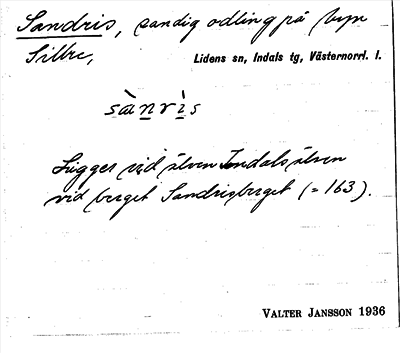 Sandris, sandig odling på byn
Sillre, Lidens sn, Indals tg, Västernorrl. l.
sànrìs
Ligger vid älven Indalsälven
vid berget Sandrisberget (= 163).
VALTER JANSSON 1936